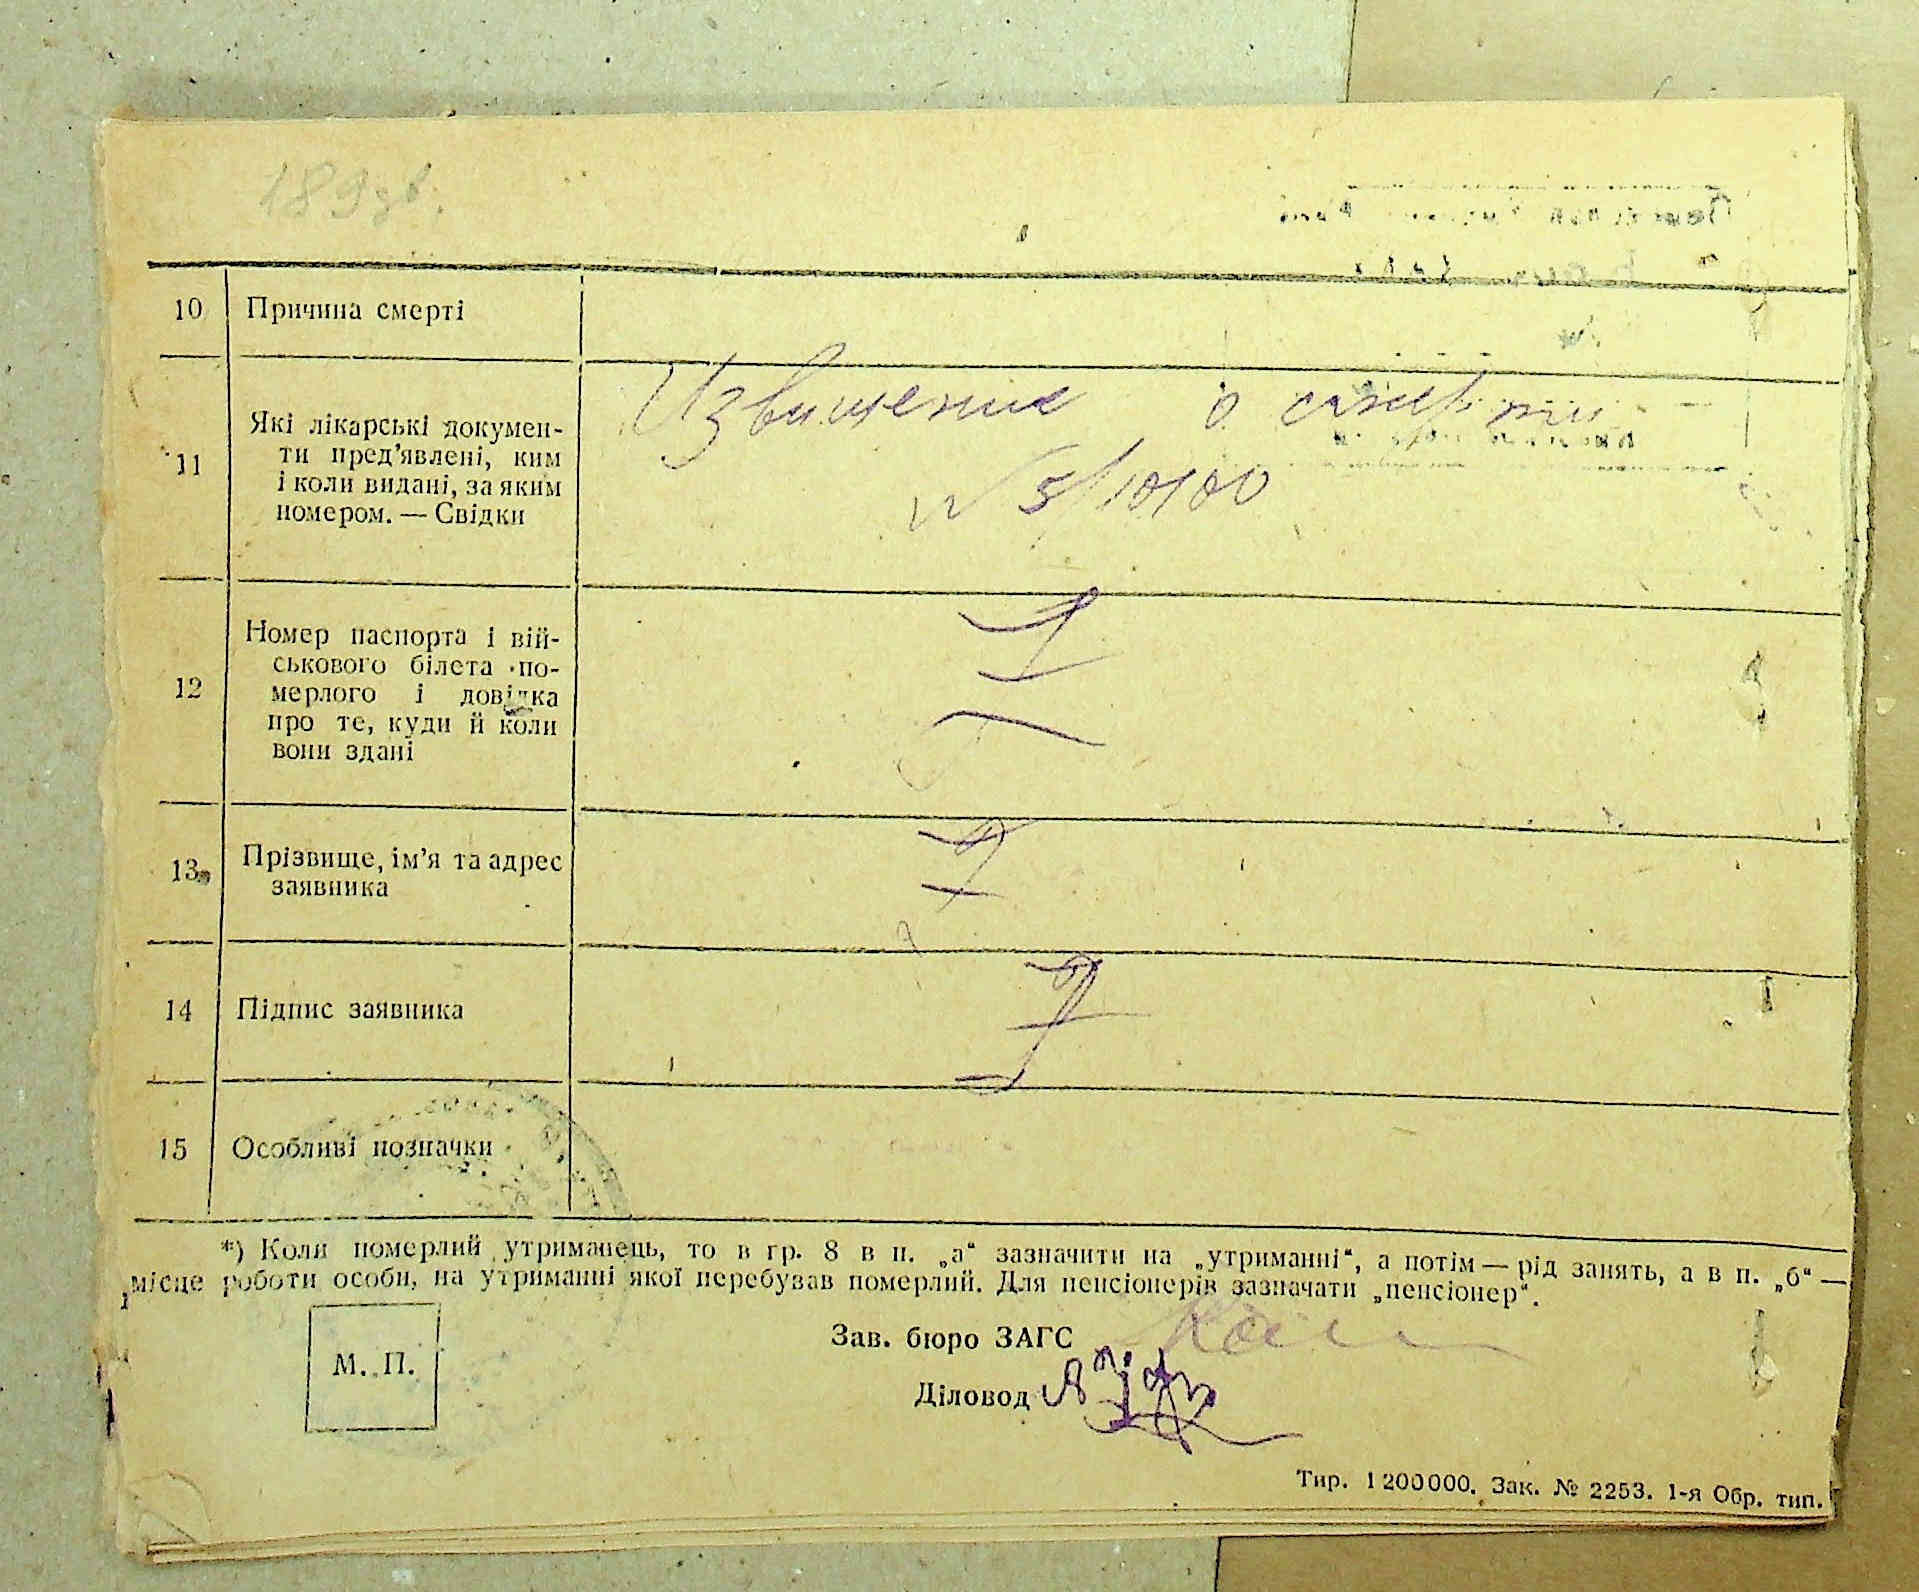 189зв.
10 Причина смерті
11 Які лікарські докумен-
ти пред'явлені, ким
і коли видані, за яким
номером. — Свідки
Извищение о смерти
№ 3/10100
12 Номер паспорта і вій-
ськового білета по-
мерлого і довідка
про те, куди й коли
вони здані
13 Прізвище, ім'я та адрес
заявника
14 Підпис заявника
15 Особливі позначки
*) Коли померлий утриманець, то в гр. 8 в п. „а“ зазначити на „утриманні“, а потім — рід занять, а в п. „б“ —
місце роботи особи, на утриманні якої перебував померлий. Для пенсіонерів зазначати „пенсіонер“.
М. П.
Зав. бюро ЗАГС
Діловод
Тир. 1 200 000. Зак. № 2253. 1-я Обр. тип.